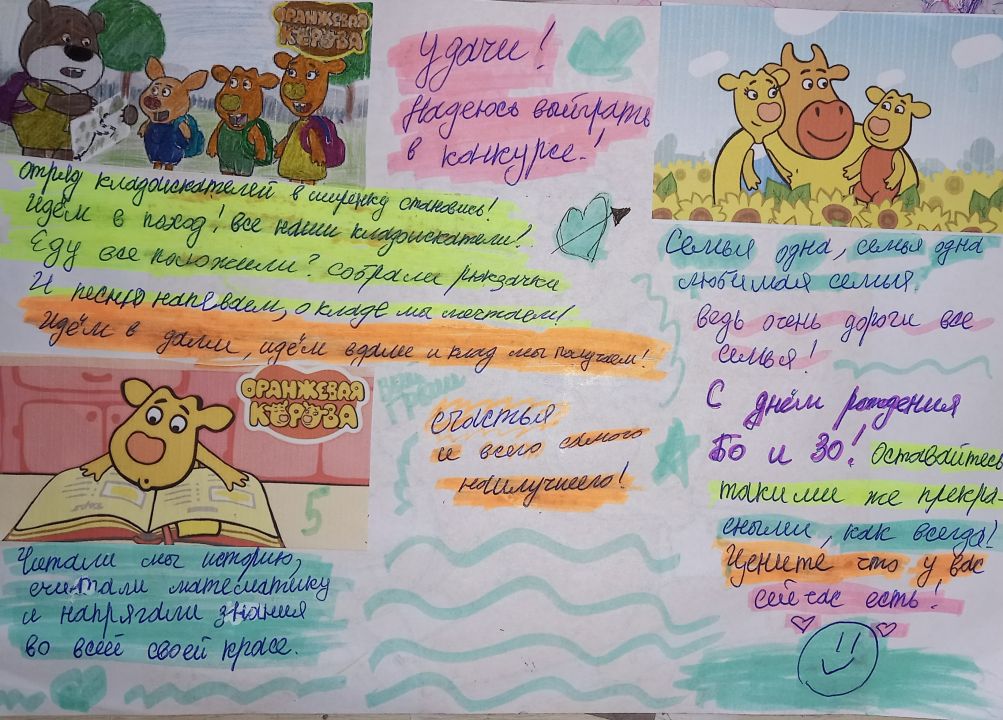 ОРАНЖЕВАЯ
КОРОВА
Удачи!
Надеюсь выиграть
в конкурсе!
отряд кладоискателей в шеренгу становись!
Идём в поход! все наши кладоискатели!
Еду все положили? Собрали рюкзачки
И песню напеваем, о кладе мы мечтаем!
Идём в дали, идём вдали и клад мы получаем!
ОРАНЖЕВАЯ
КОРОВА
5
Читали мы историю,
считали математику
и напрягали знания
во всей своей красе.
счастья
и всего самого
наилучшего!
Семья одна, семья одна
любимая семья.
ведь очень дороги все
семья!
С днём рождения
Бо и Зо! Оставайтесь
такими же прекра
сными, как всегда!
Цените что у вас
сейчас есть!